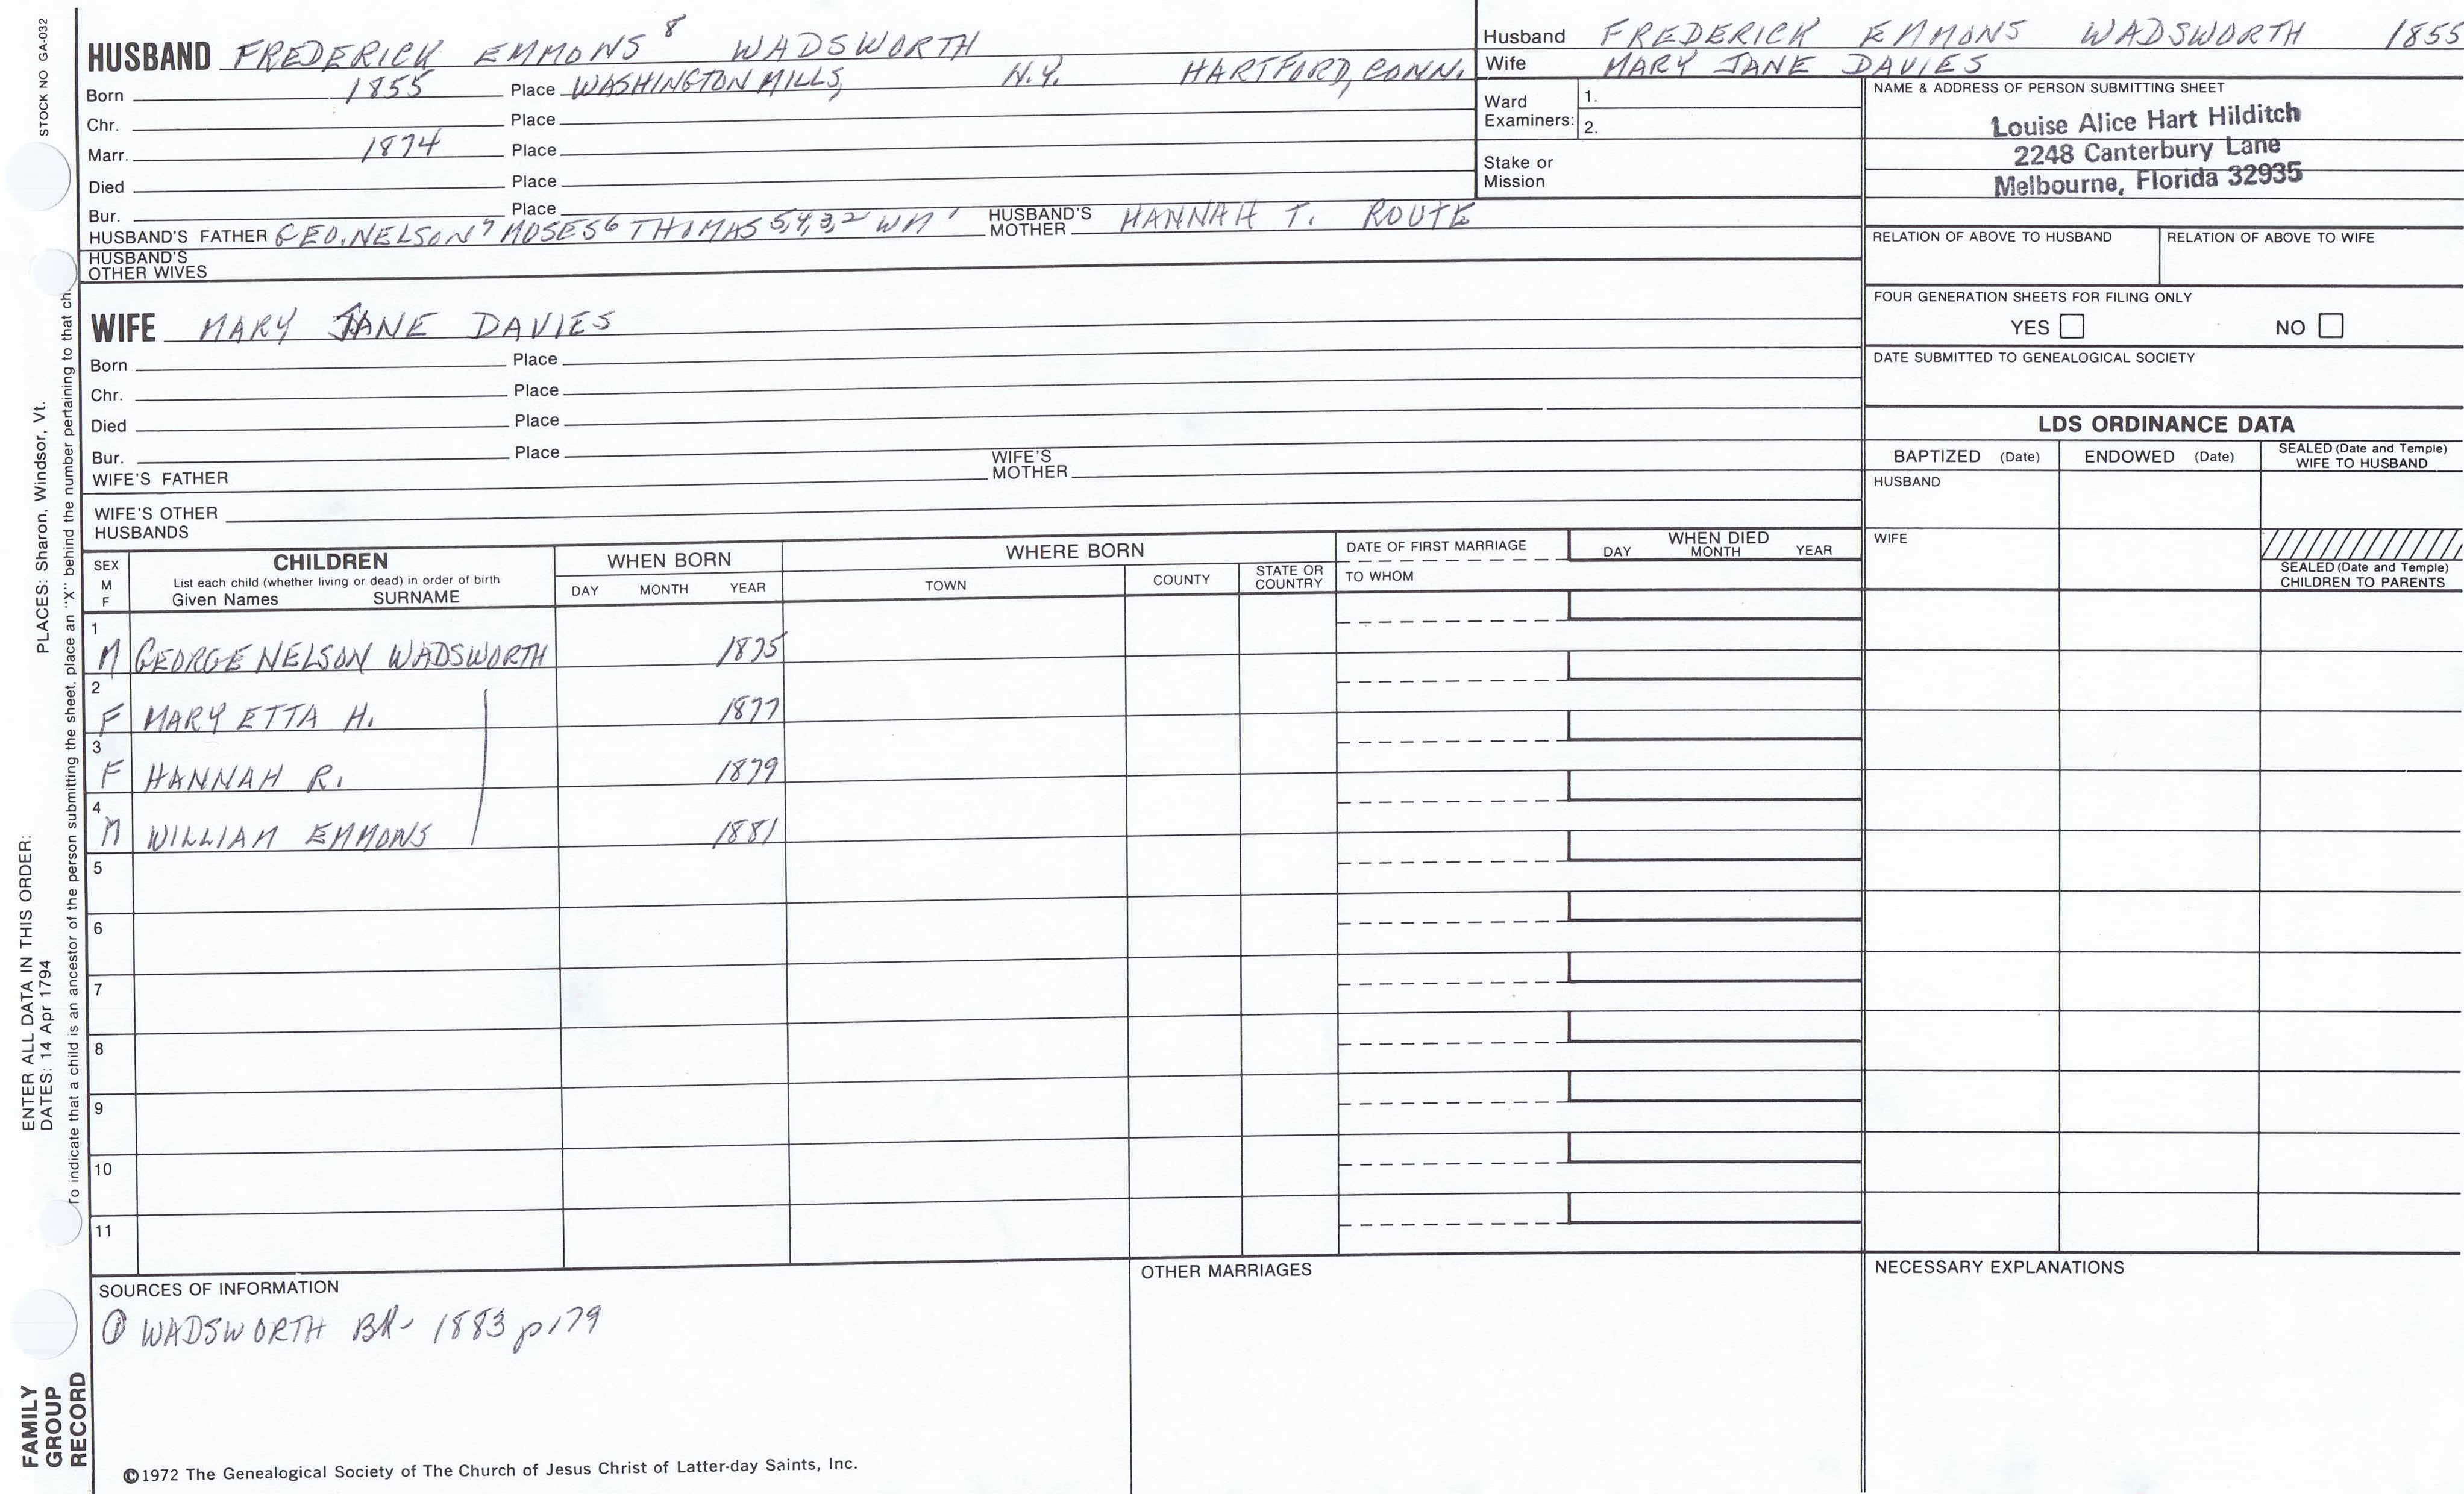 STOCK NO GA-032
HUSBAND FREDERICK EMMONS 8 WADSWORTH
Born 1855 Place WASHINGTON MILLS, N.Y. HARTFORD, CONN.
Chr. Place
Marr. 1874 Place
Died Place
Bur. Place
HUSBAND'S FATHER GEO. NELSON 7 MOSES 6 THOMAS 5,4,3,2 WM 1 HUSBAND'S MOTHER HANNAH T. ROUTE
HUSBAND'S OTHER WIVES
WIFE MARY JANE DAVIES
Born Place
Chr. Place
Died Place
Bur. Place
WIFE'S FATHER WIFE'S MOTHER
WIFE'S OTHER HUSBANDS
Husband FREDERICK EMMONS WADSWORTH 1855
Wife MARY JANE DAVIES
Ward Examiners: 1.
2.
Stake or Mission
NAME & ADDRESS OF PERSON SUBMITTING SHEET
Louise Alice Hart Hilditch
2248 Canterbury Lane
Melbourne, Florida 32935
RELATION OF ABOVE TO HUSBAND RELATION OF ABOVE TO WIFE
FOUR GENERATION SHEETS FOR FILING ONLY
YES NO
DATE SUBMITTED TO GENEALOGICAL SOCIETY
LDS ORDINANCE DATA
BAPTIZED (Date) ENDOWED (Date) SEALED (Date and Temple) WIFE TO HUSBAND
HUSBAND
WIFE
SEALED (Date and Temple)
CHILDREN TO PARENTS
SEX M F
CHILDREN
List each child (whether living or dead) in order of birth
Given Names SURNAME
WHEN BORN
DAY MONTH YEAR
WHERE BORN
TOWN COUNTY STATE OR COUNTRY
DATE OF FIRST MARRIAGE
TO WHOM
WHEN DIED
DAY MONTH YEAR
1 M GEORGE NELSON WADSWORTH 1875
2 F MARY ETTA H. 1877
3 F HANNAH R. 1879
4 M WILLIAM EMMONS 1881
5
6
7
8
9
10
11
SOURCES OF INFORMATION
① WADSWORTH BK- 1883 p179
OTHER MARRIAGES
NECESSARY EXPLANATIONS
©1972 The Genealogical Society of The Church of Jesus Christ of Latter-day Saints, Inc.
ENTER ALL DATA IN THIS ORDER:
DATES: 14 Apr 1794 PLACES: Sharon, Windsor, Vt.
To indicate that a child is an ancestor of the person submitting the sheet, place an "X" behind the number pertaining to that ch
FAMILY
GROUP
RECORD